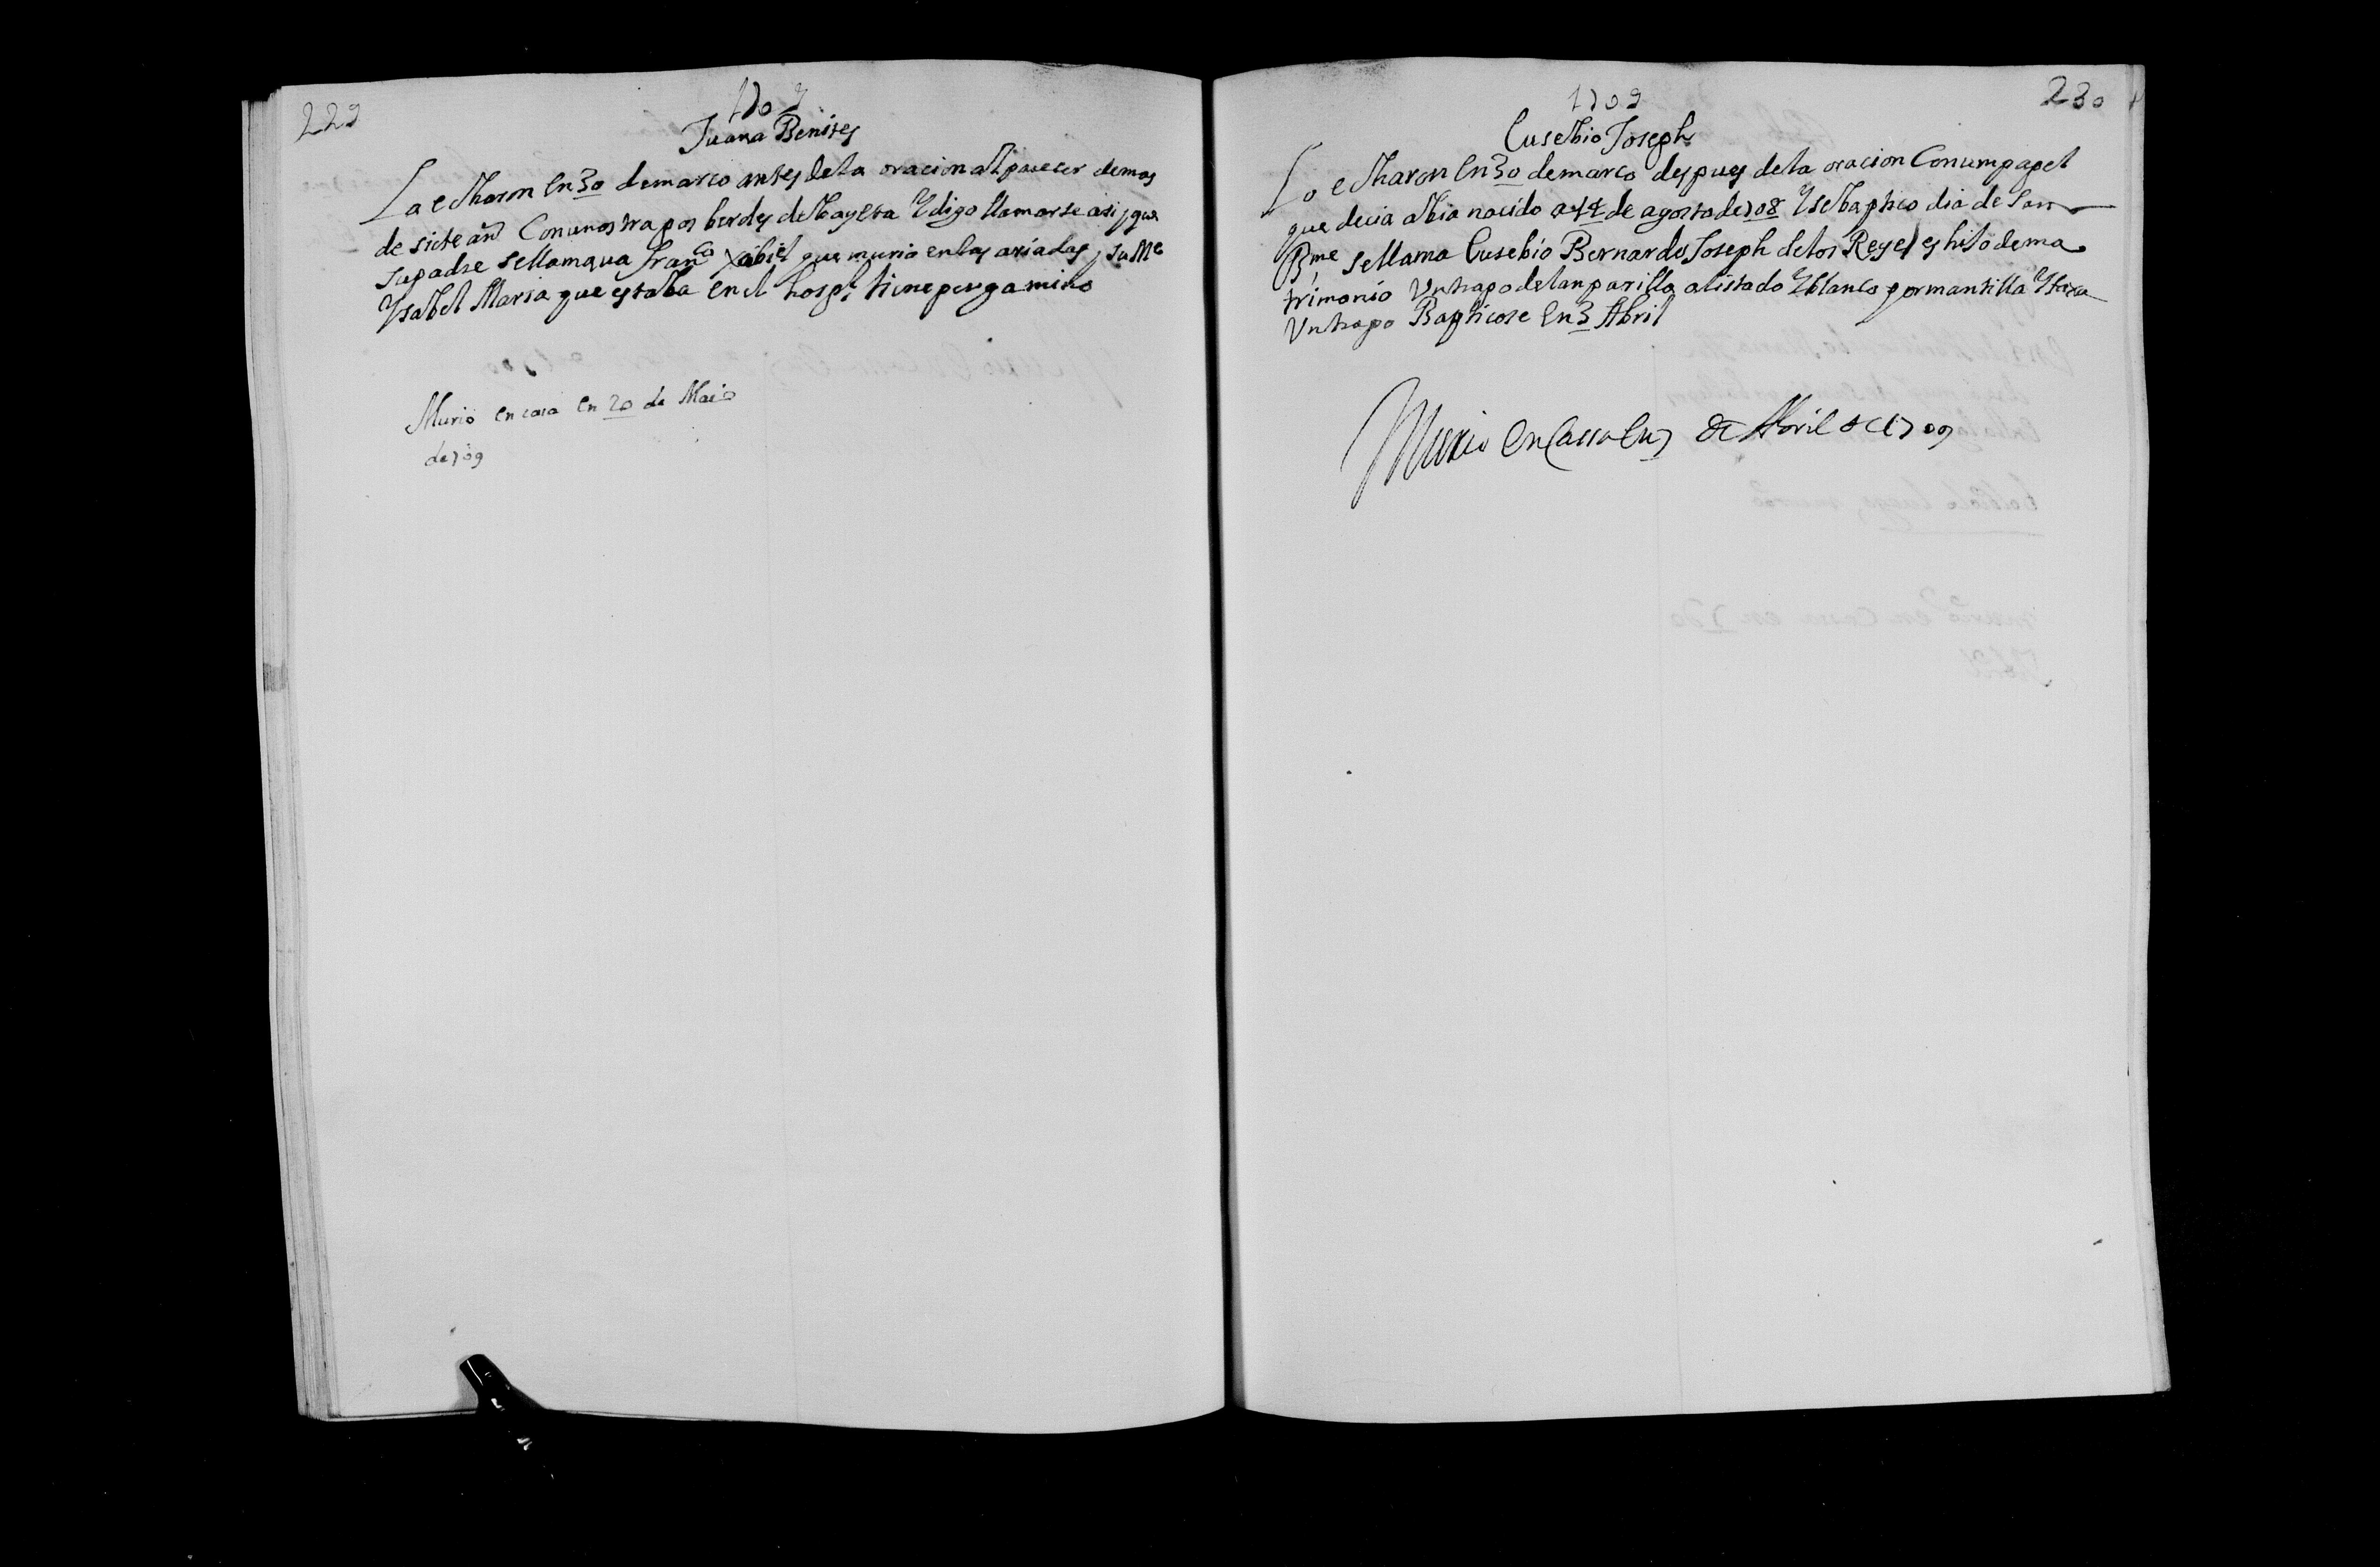 229
1709
Juana Benites
La echaron en 30 de marco antes de la oracion al parecer de mas
de siete añ Con unos trapos berdes de bayeta Y digo llamarse asi y que
su padre se llamava Fran.co Xabiel que murio en las ariadas y su Me
Ysabel Maria que estaba en el hosp.l tiene pergamino
Murio en casa en 20 de Maio
de 709
230
1709
Eusebio Joseph
Lo echaron en 30 de marco despues de la oracion Con um papel
que decia abia nacido a 14 de agosto de 708 Y se baptico dia de San
B.me se llama Eusebio Bernardo Joseph de los Reyes es hijo de ma
trimonio Un trapo de lanparilla alistado Y blanco por mantilla Y faxa
Un trapo Bapticose en 3 Abril
Murio en Cassa en 7 de Abril de 1709